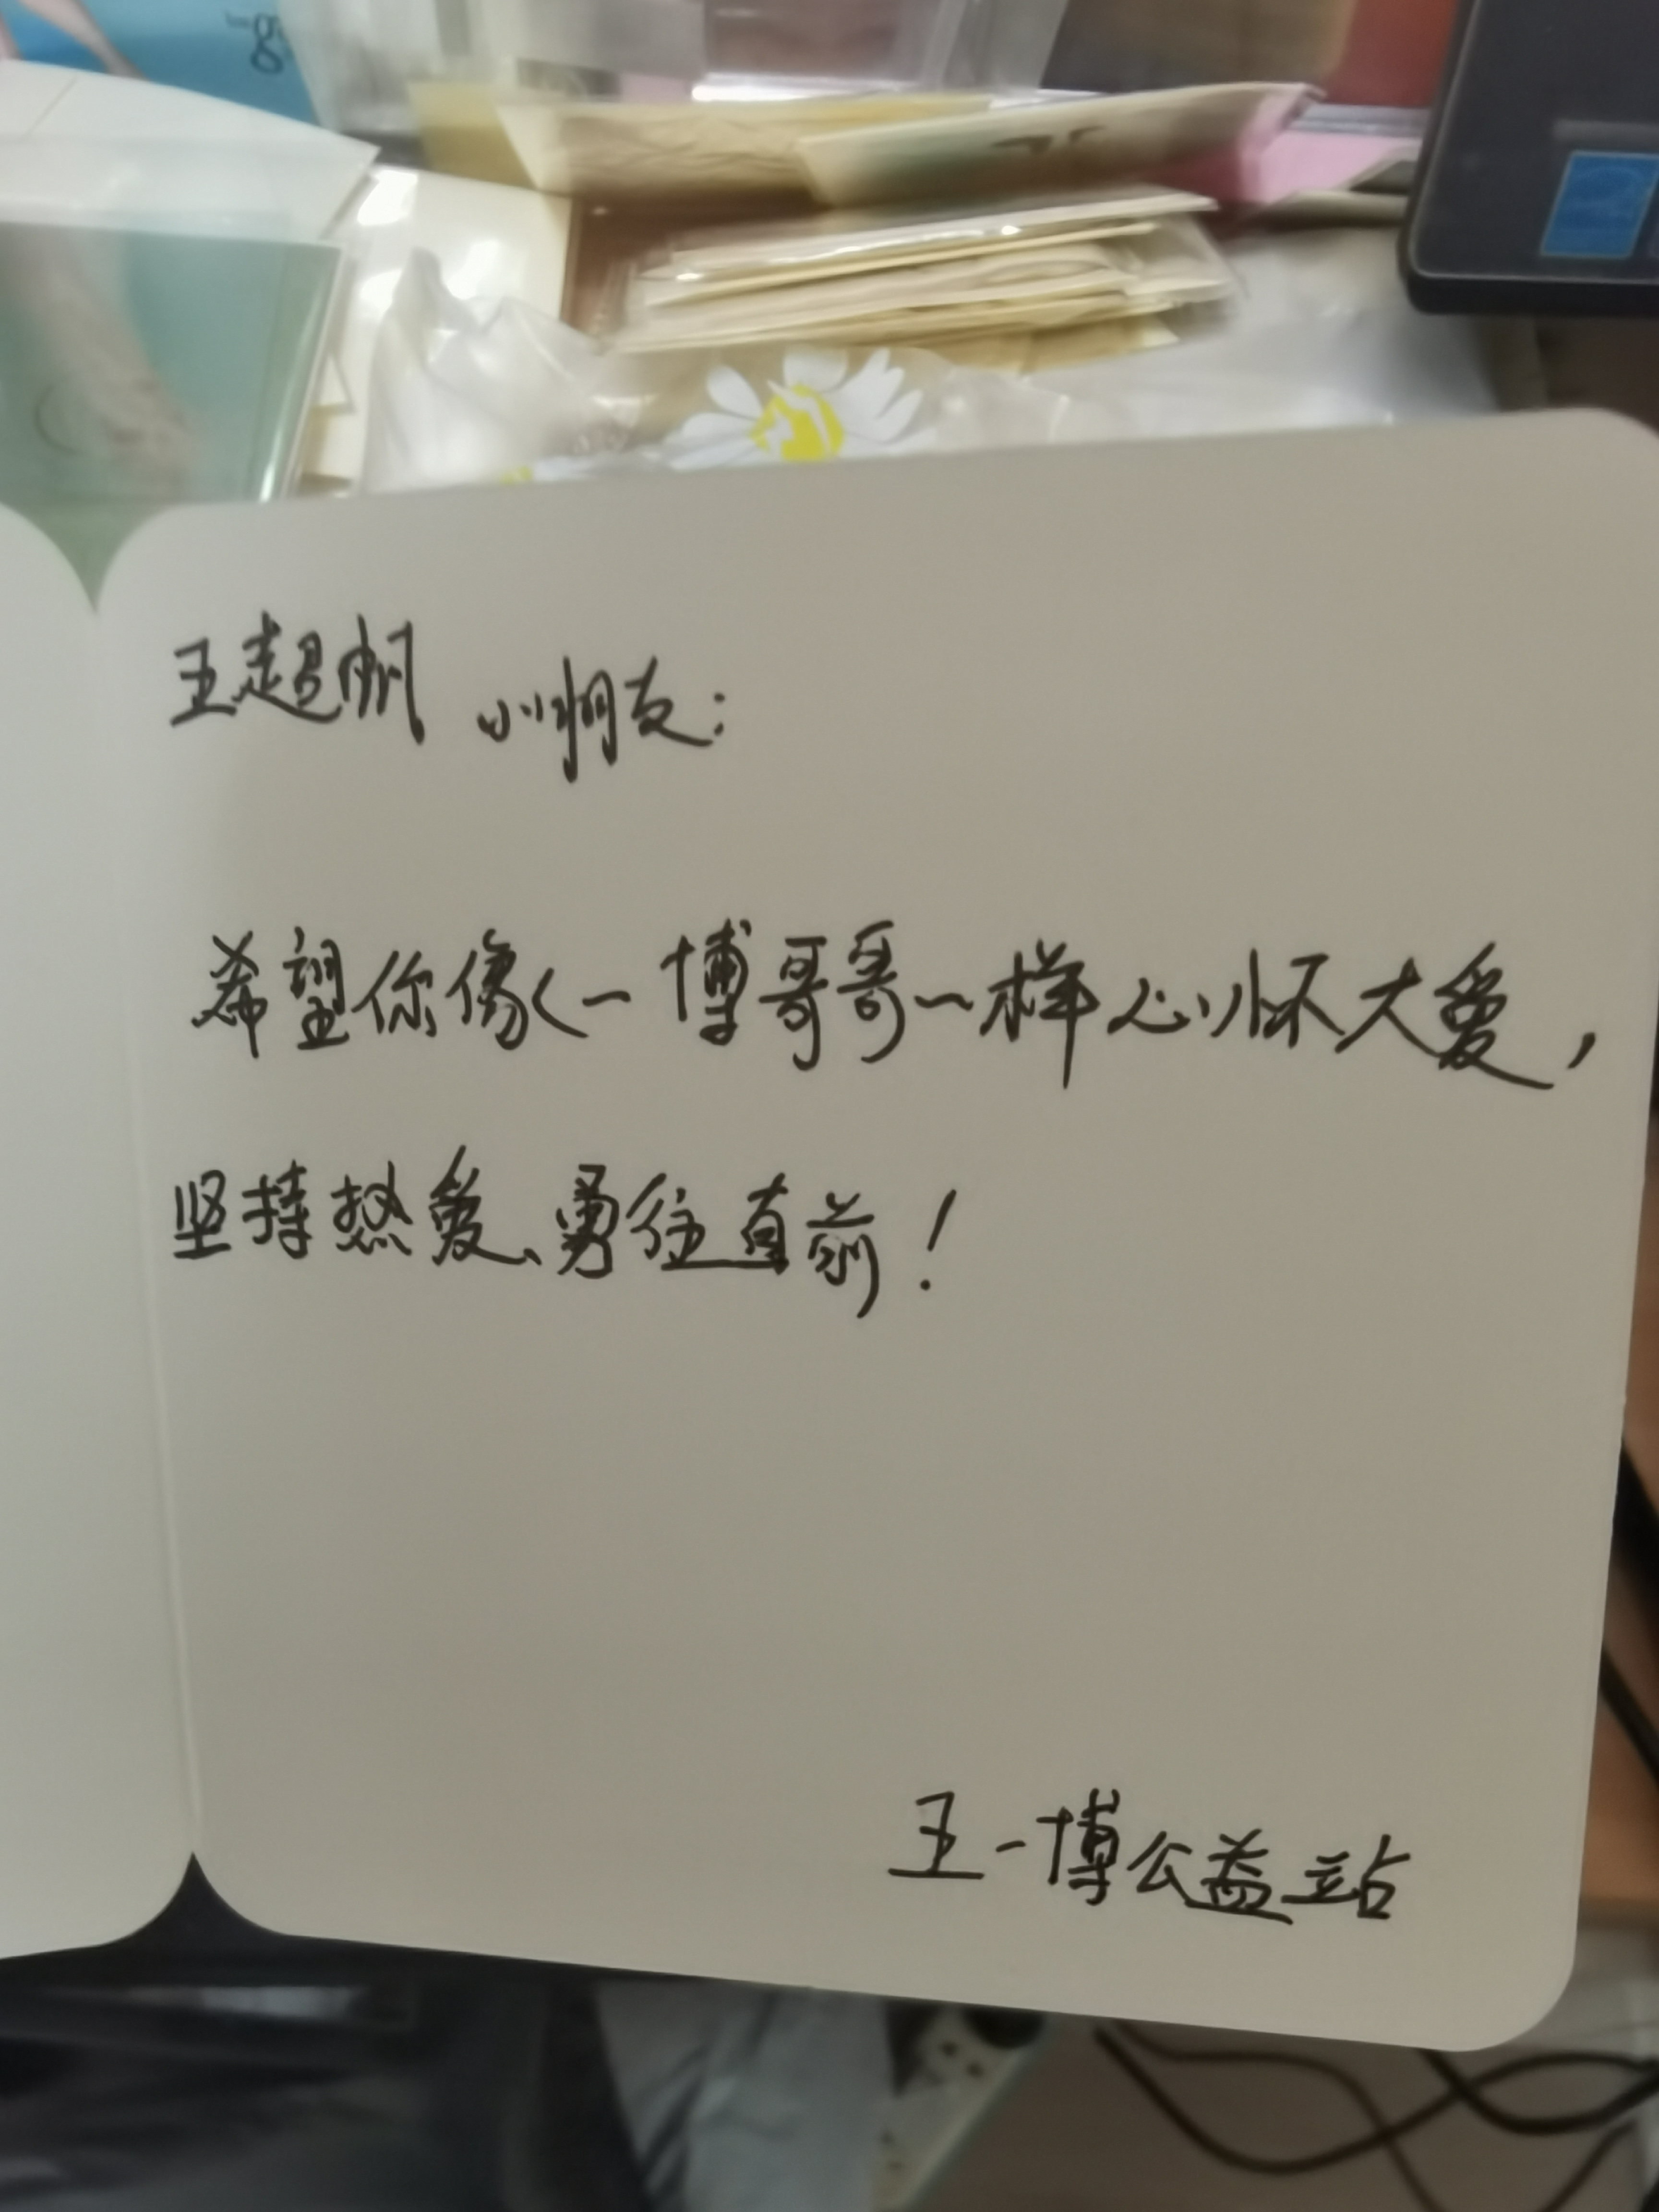 王超帆 小朋友：
希望你像一博哥哥一样心怀大爱，
坚持热爱、勇往直前！
王一博公益站